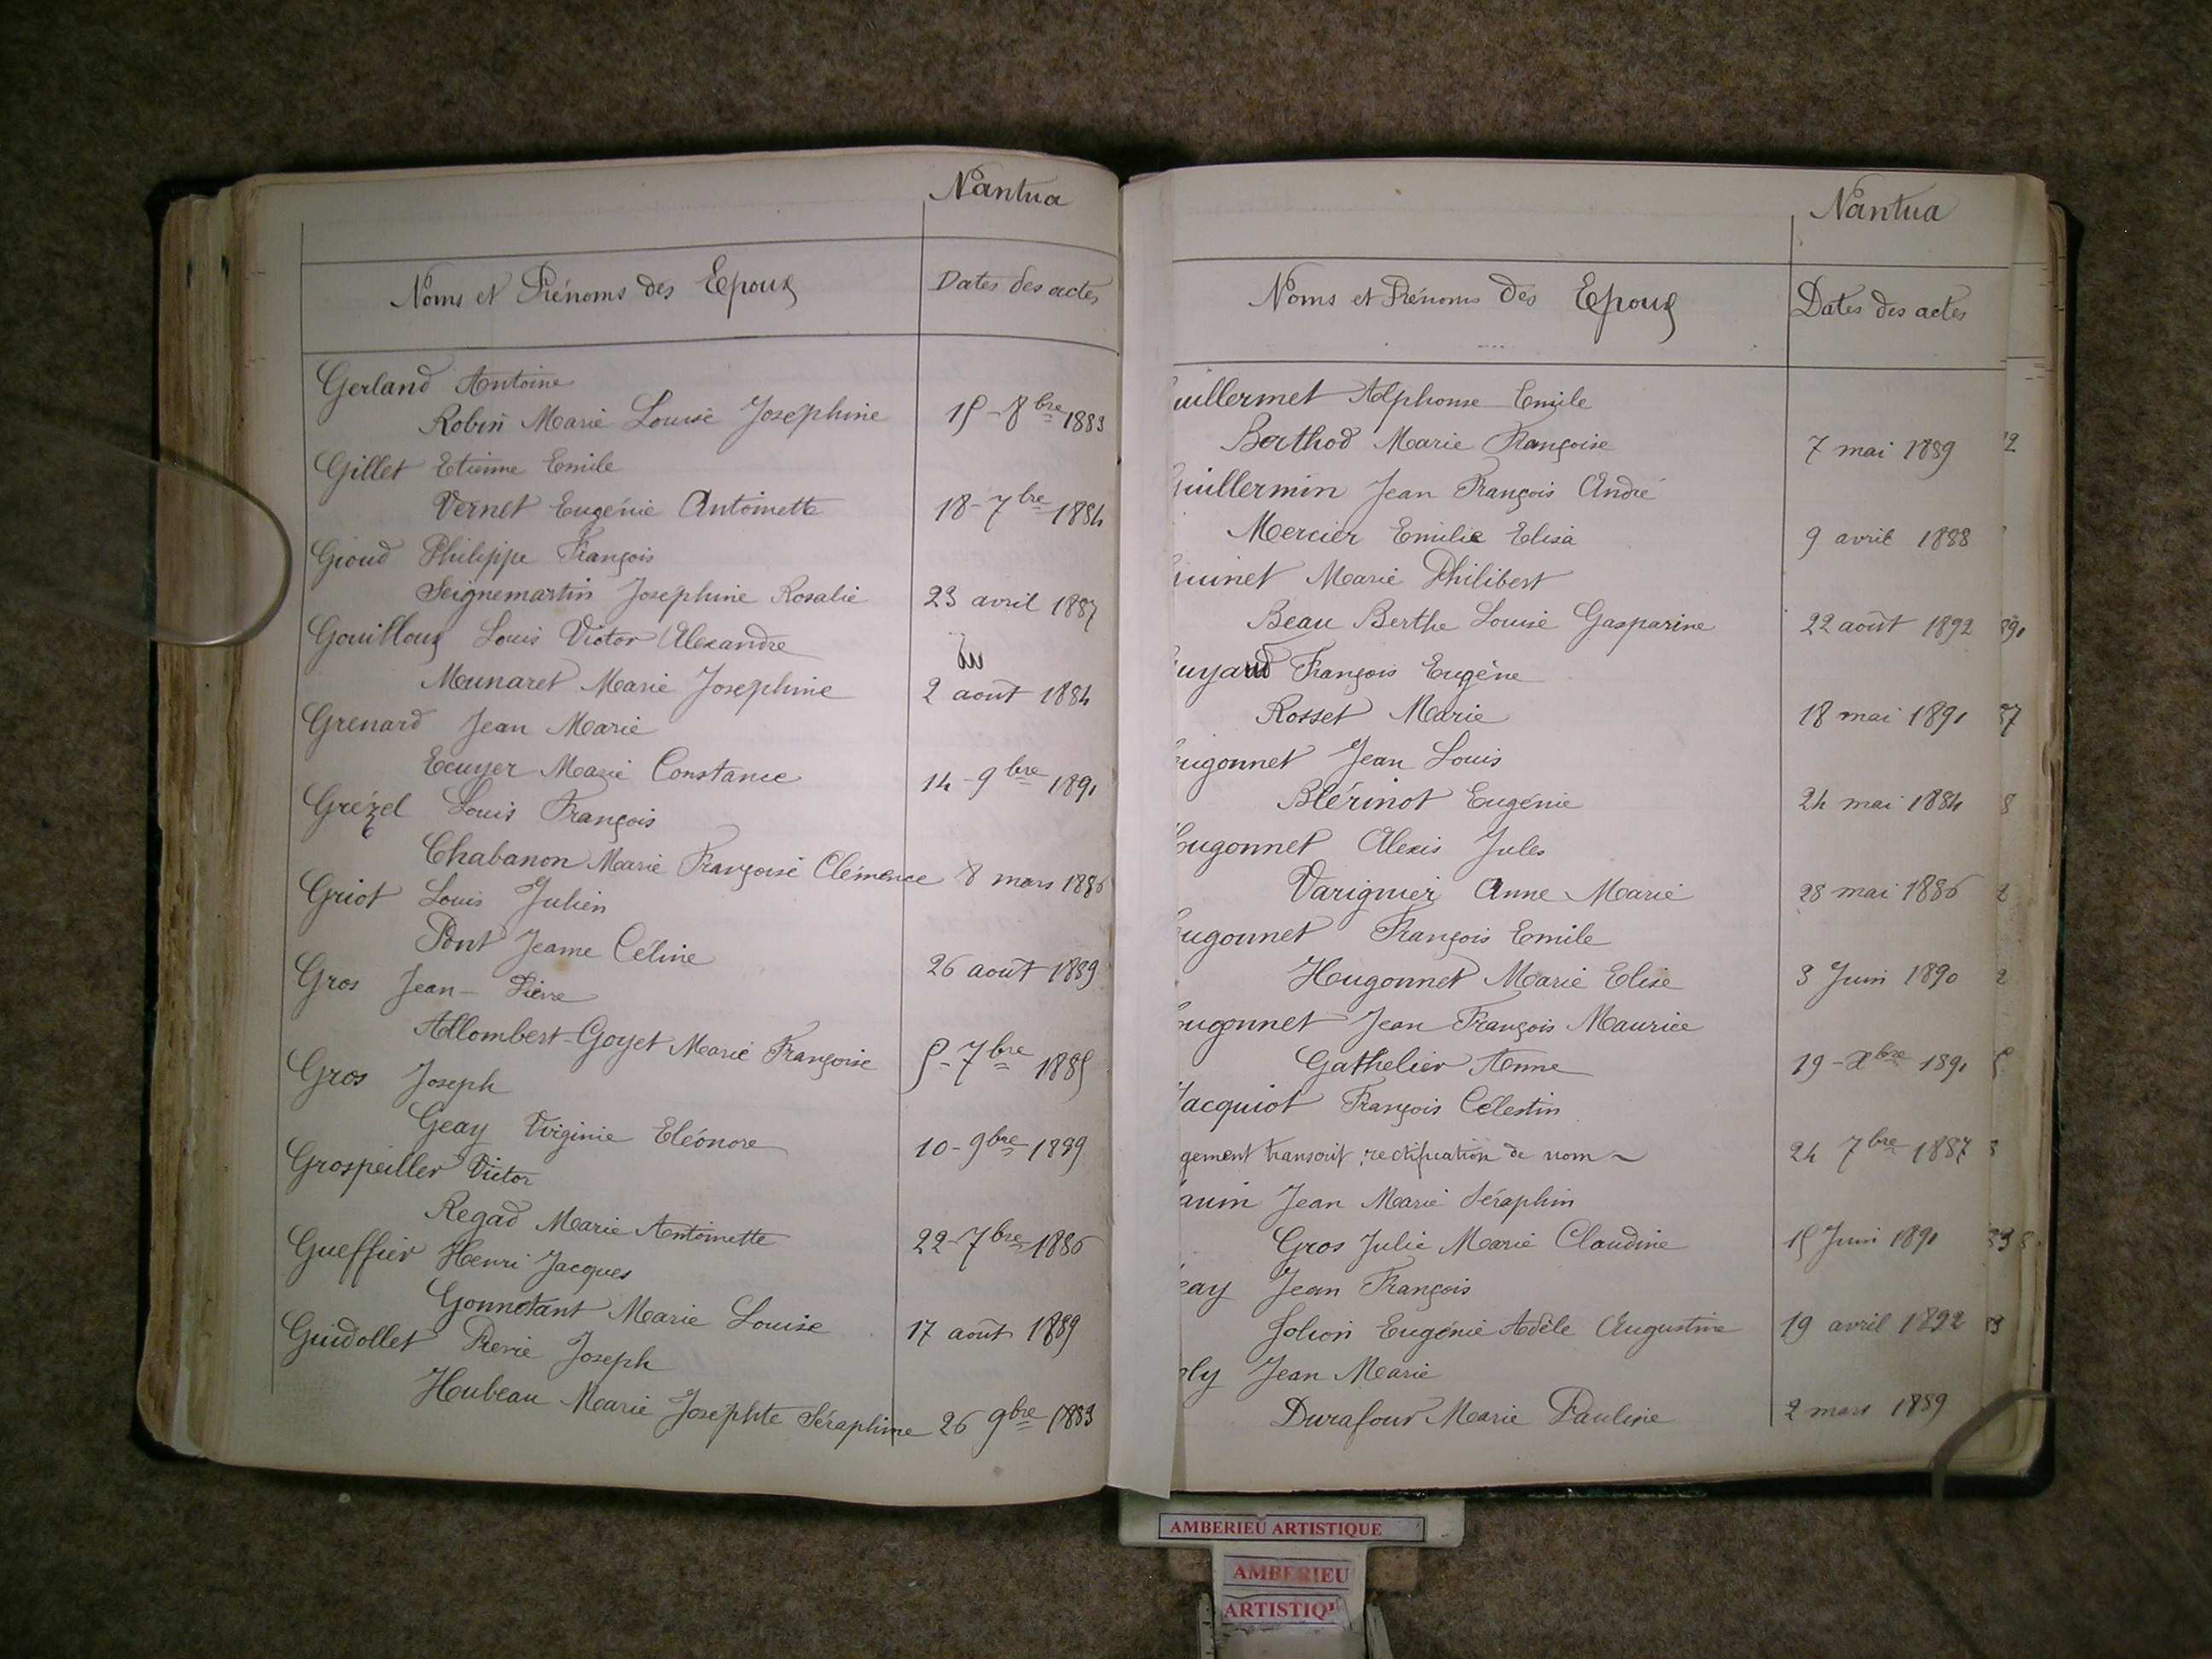 Nantua
Noms et Prénoms des Epoux Dates des actes
Gerland Antoine
Robin Marie Louise Josephine 15-8bre 1883
Gillet Etienne Emile
Vernet Eugénie Antoinette 18-7bre 1884
Gioud Philippe François
Seignemartin Josephine Rosalie 23 avril 1887
Gouilloux Louis Victor Alexandre
Munaret Marie Josephine du 2 août 1884
Grenard Jean Marie
Ecuyer Marie Constance 14-9bre 1891
Grézel Louis François
Chabanon Marie Françoise Clémence 8 mars 1886
Griot Louis Julien
Pont Jeanne Céline 26 août 1889
Gros Jean-Pierre
Allombert-Goyet Marie Françoise 5-7bre 1885
Gros Joseph
Geay Virginie Eléonore 10-9bre 1889
Grospeiller Victor
Regad Marie Antoinette 22-7bre 1886
Gueffier Henri Jacques
Gonnetant Marie Louise 17 août 1889
Guidollet Pierre Joseph
Houbeau Marie Josephte Séraphine 26 9bre 1883
Nantua
Noms et Prénoms des Epoux Dates des actes
uillermet Alphonse Emile
Berthod Marie Françoise 7 mai 1889
uillermin Jean François André
Mercier Emilie Elisa 9 avril 1888
uinet Marie Philibert
Beau Berthe Louise Gasparine 22 août 1892
uyaud François Eugène
Rosset Marie 18 mai 1891
ugonnet Jean Louis
Blérinot Eugénie 24 mai 1884
ugonnet Alexis Jules
Varignier Anne Marie 28 mai 1886
ugonnet François Emile
Hugonnet Marie Elise 3 Juin 1890
ugonnet Jean François Maurice
Gathelier Anne 19-Xbre 1891
acquiot François Célestin
gement transcrit, rectification de nom 24 7bre 1887
Jean Marie Séraphin
Gros Julie Marie Claudine 15 Juin 1891
eay Jean François
Jolion Eugénie Adèle Augustine 19 avril 1892
oly Jean Marie
Durafour Marie Pauline 2 mars 1889
AMBERIEU ARTISTIQUE
AMBERIEU
ARTISTIQ